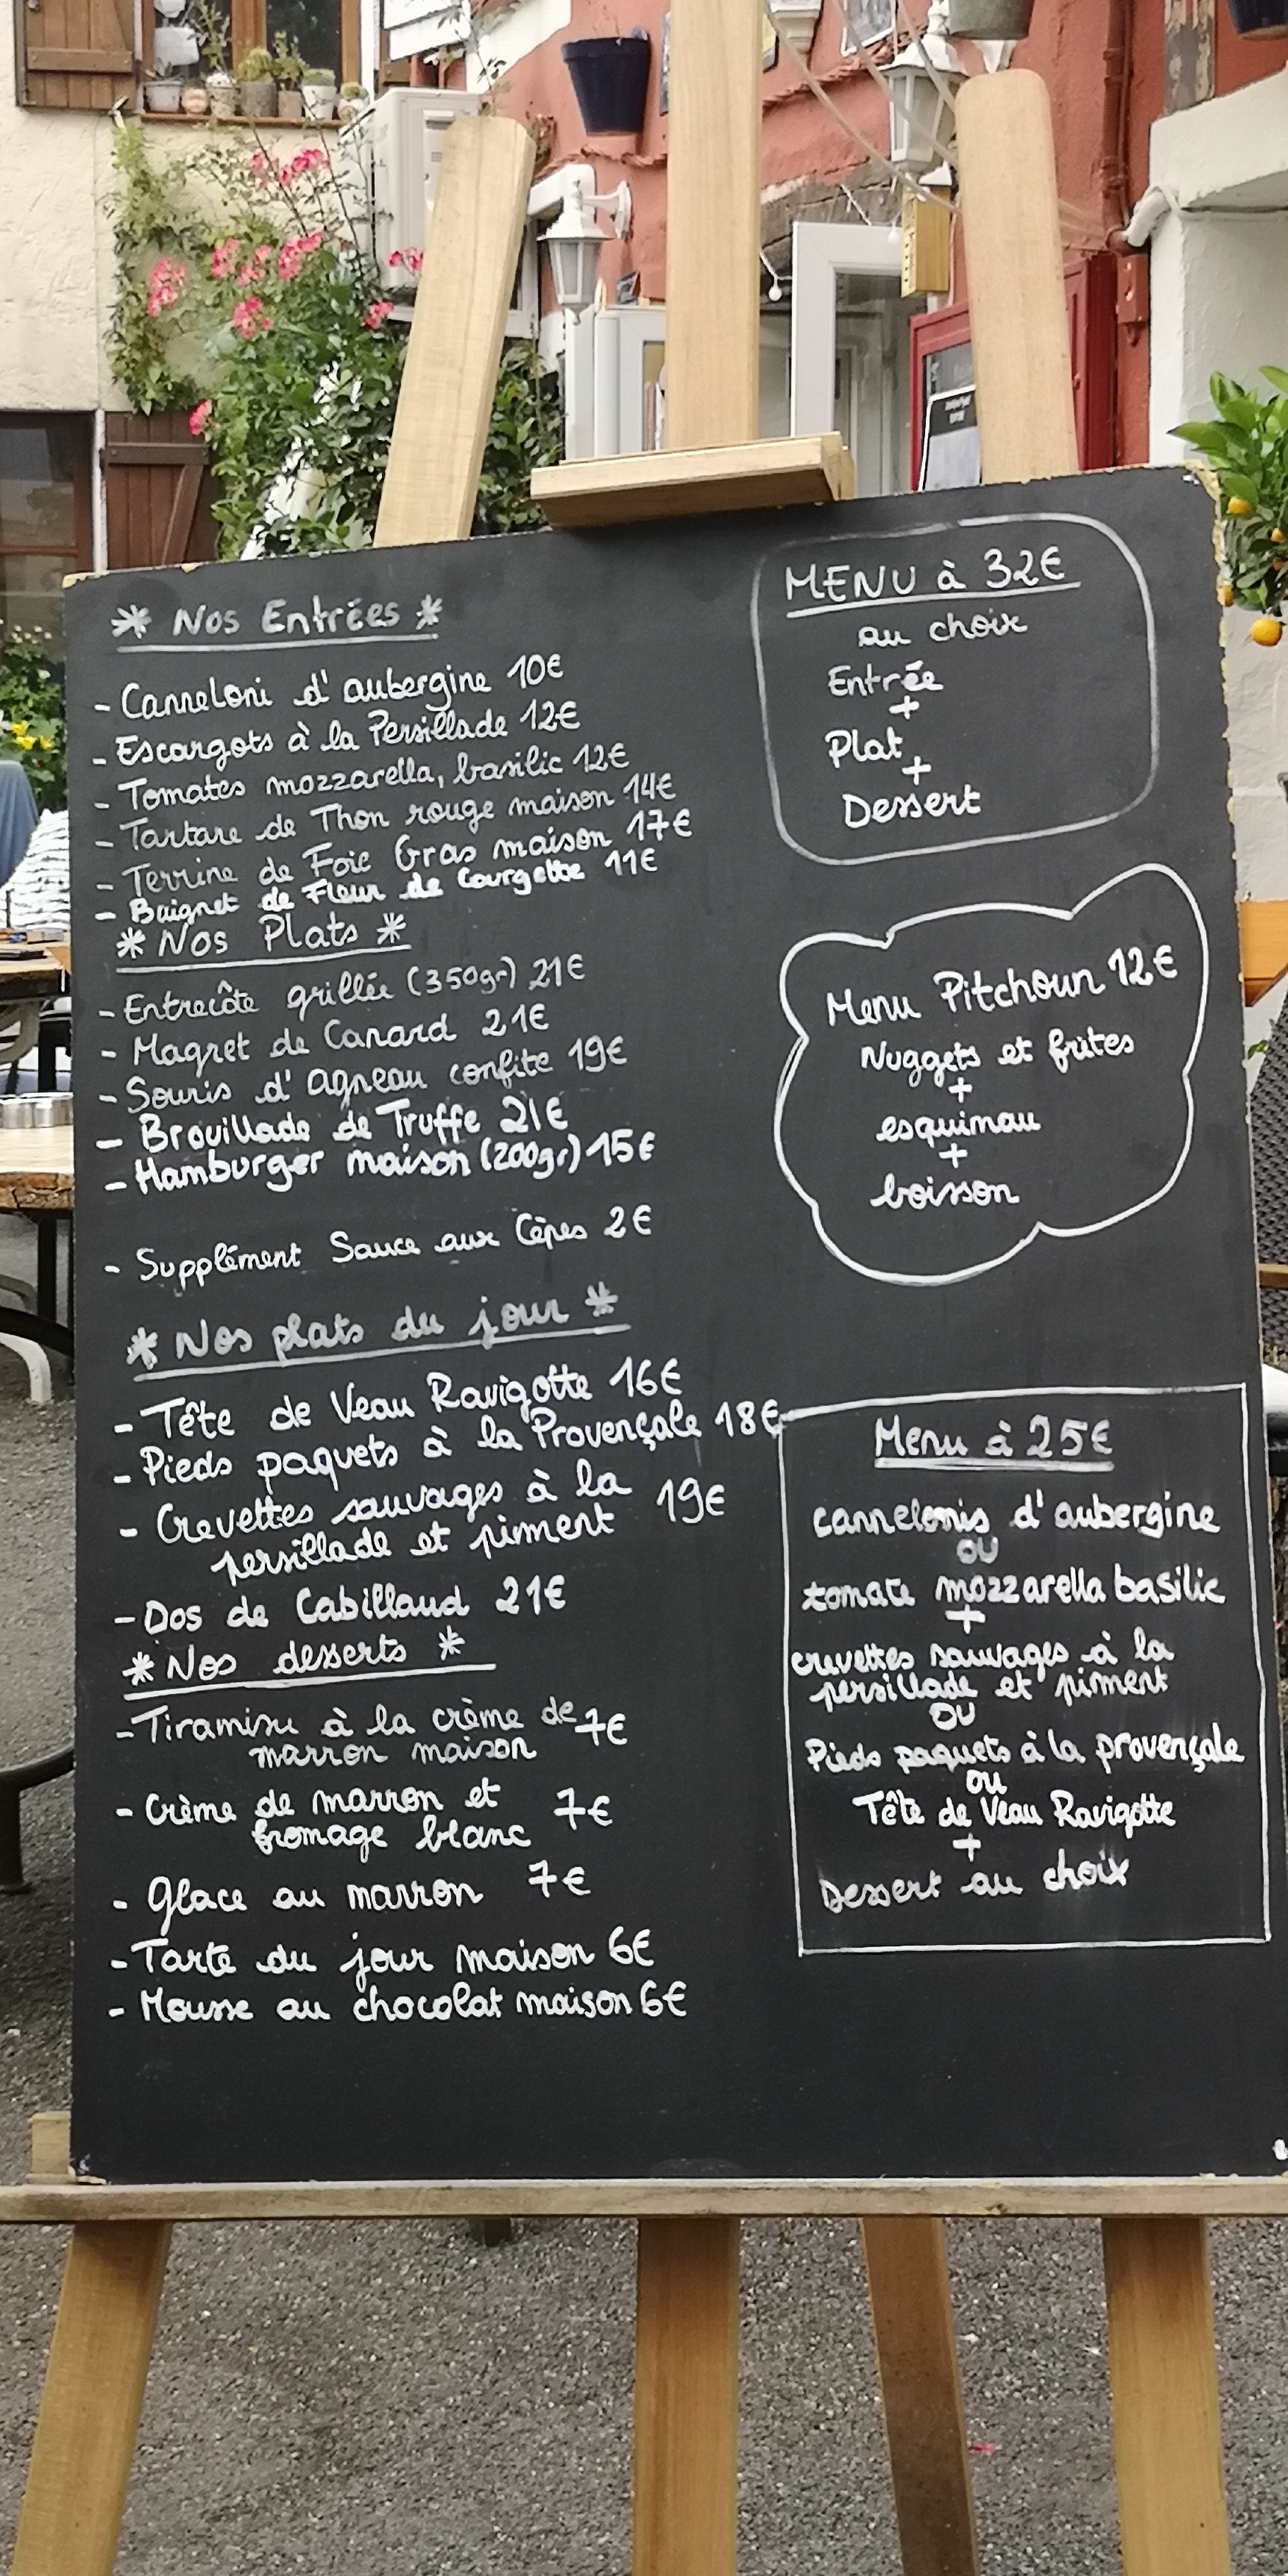 * Nos Entrées *
- Canneloni d'aubergine 10€
- Escargots à la Persillade 12€
- Tomates mozzarella, basilic 12€
- Tartare de Thon rouge maison 14€
- Terrine de Foie Gras maison 17€
- Baignet de Fleur de Courgette 11€
* Nos Plats *
- Entrecôte grillée (350gr) 21€
- Magret de Canard 21€
- Souris d'agneau confite 19€
- Brouillade de Truffe 21€
- Hamburger maison (200gr) 15€
- Supplément Sauce aux Cèpes 2€
* Nos plats du jour *
- Tête de Veau Ravigotte 16€
- Pieds paquets à la Provençale 18€
- Crevettes sauvages à la 19€
persillade et piment
- Dos de Cabillaud 21€
* Nos desserts *
- Tiramisu à la crème de 7€
marron maison
- Crème de marron et 7€
fromage blanc
- Glace au marron 7€
- Tarte du jour maison 6€
- Mousse au chocolat maison 6€
MENU à 32€
au choix
Entrée
+
Plat
+
Dessert
Menu Pitchoun 12€
Nuggets et frites
+
esquimau
+
boisson
Menu à 25€
cannelonis d'aubergine
OU
tomate mozzarella basilic
+
crevettes sauvages à la
persillade et piment
OU
Pieds paquets à la provençale
OU
Tête de Veau Ravigotte
+
Dessert au choix